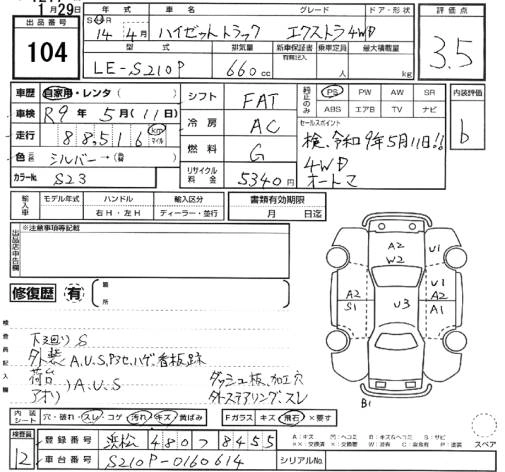 月29日
出品番号
104
年式 車名 グレード ドア・形状
S H R
14年 4月 ハイゼットトラック エクストラ4WD
型式 排気量 新車保証書 有無記入 乗車定員 最大積載量
LE-S210P 660cc 人 kg
評価点
3.5
車歴 自家用・レンタ( )
車検 R9年 5月(11日)
走行 88,516 km マイル
色 シルバー→( )
カラーNo. S23
シフト FAT
冷房 AC
燃料 G
リサイクル料金 5340円
純正のみ PS PW AW SR
ABS エアB TV ナビ
セールスポイント
検、令和9年5月11日!!
4WD
オートマ
内装評価
b
輸入車 モデル年式 ハンドル 輸入区分
右H・左H ディーラー・並行
書類有効期限
月 日迄
出品店申告欄
※注意事項等記載
修復歴 有 箇所
検査員記入欄
下回りS
外装A.U.S.P3セ.ハゲ.看板跡
荷台
アオリ )A.U.S
ダッシュ板、加工穴
外ステアリング、スレ
A2
W2
U1
U1
A2
A2
S1
U3
A1
B1
スペア
内装シート 穴・破れ・スレ・コゲ 汚れ・キズ・黄ばみ
Fガラス キズ・飛石・×要す
検査員
12
登録番号 浜松 480 つ 8455
車台番号 S210P-0160614
シリアルNo.